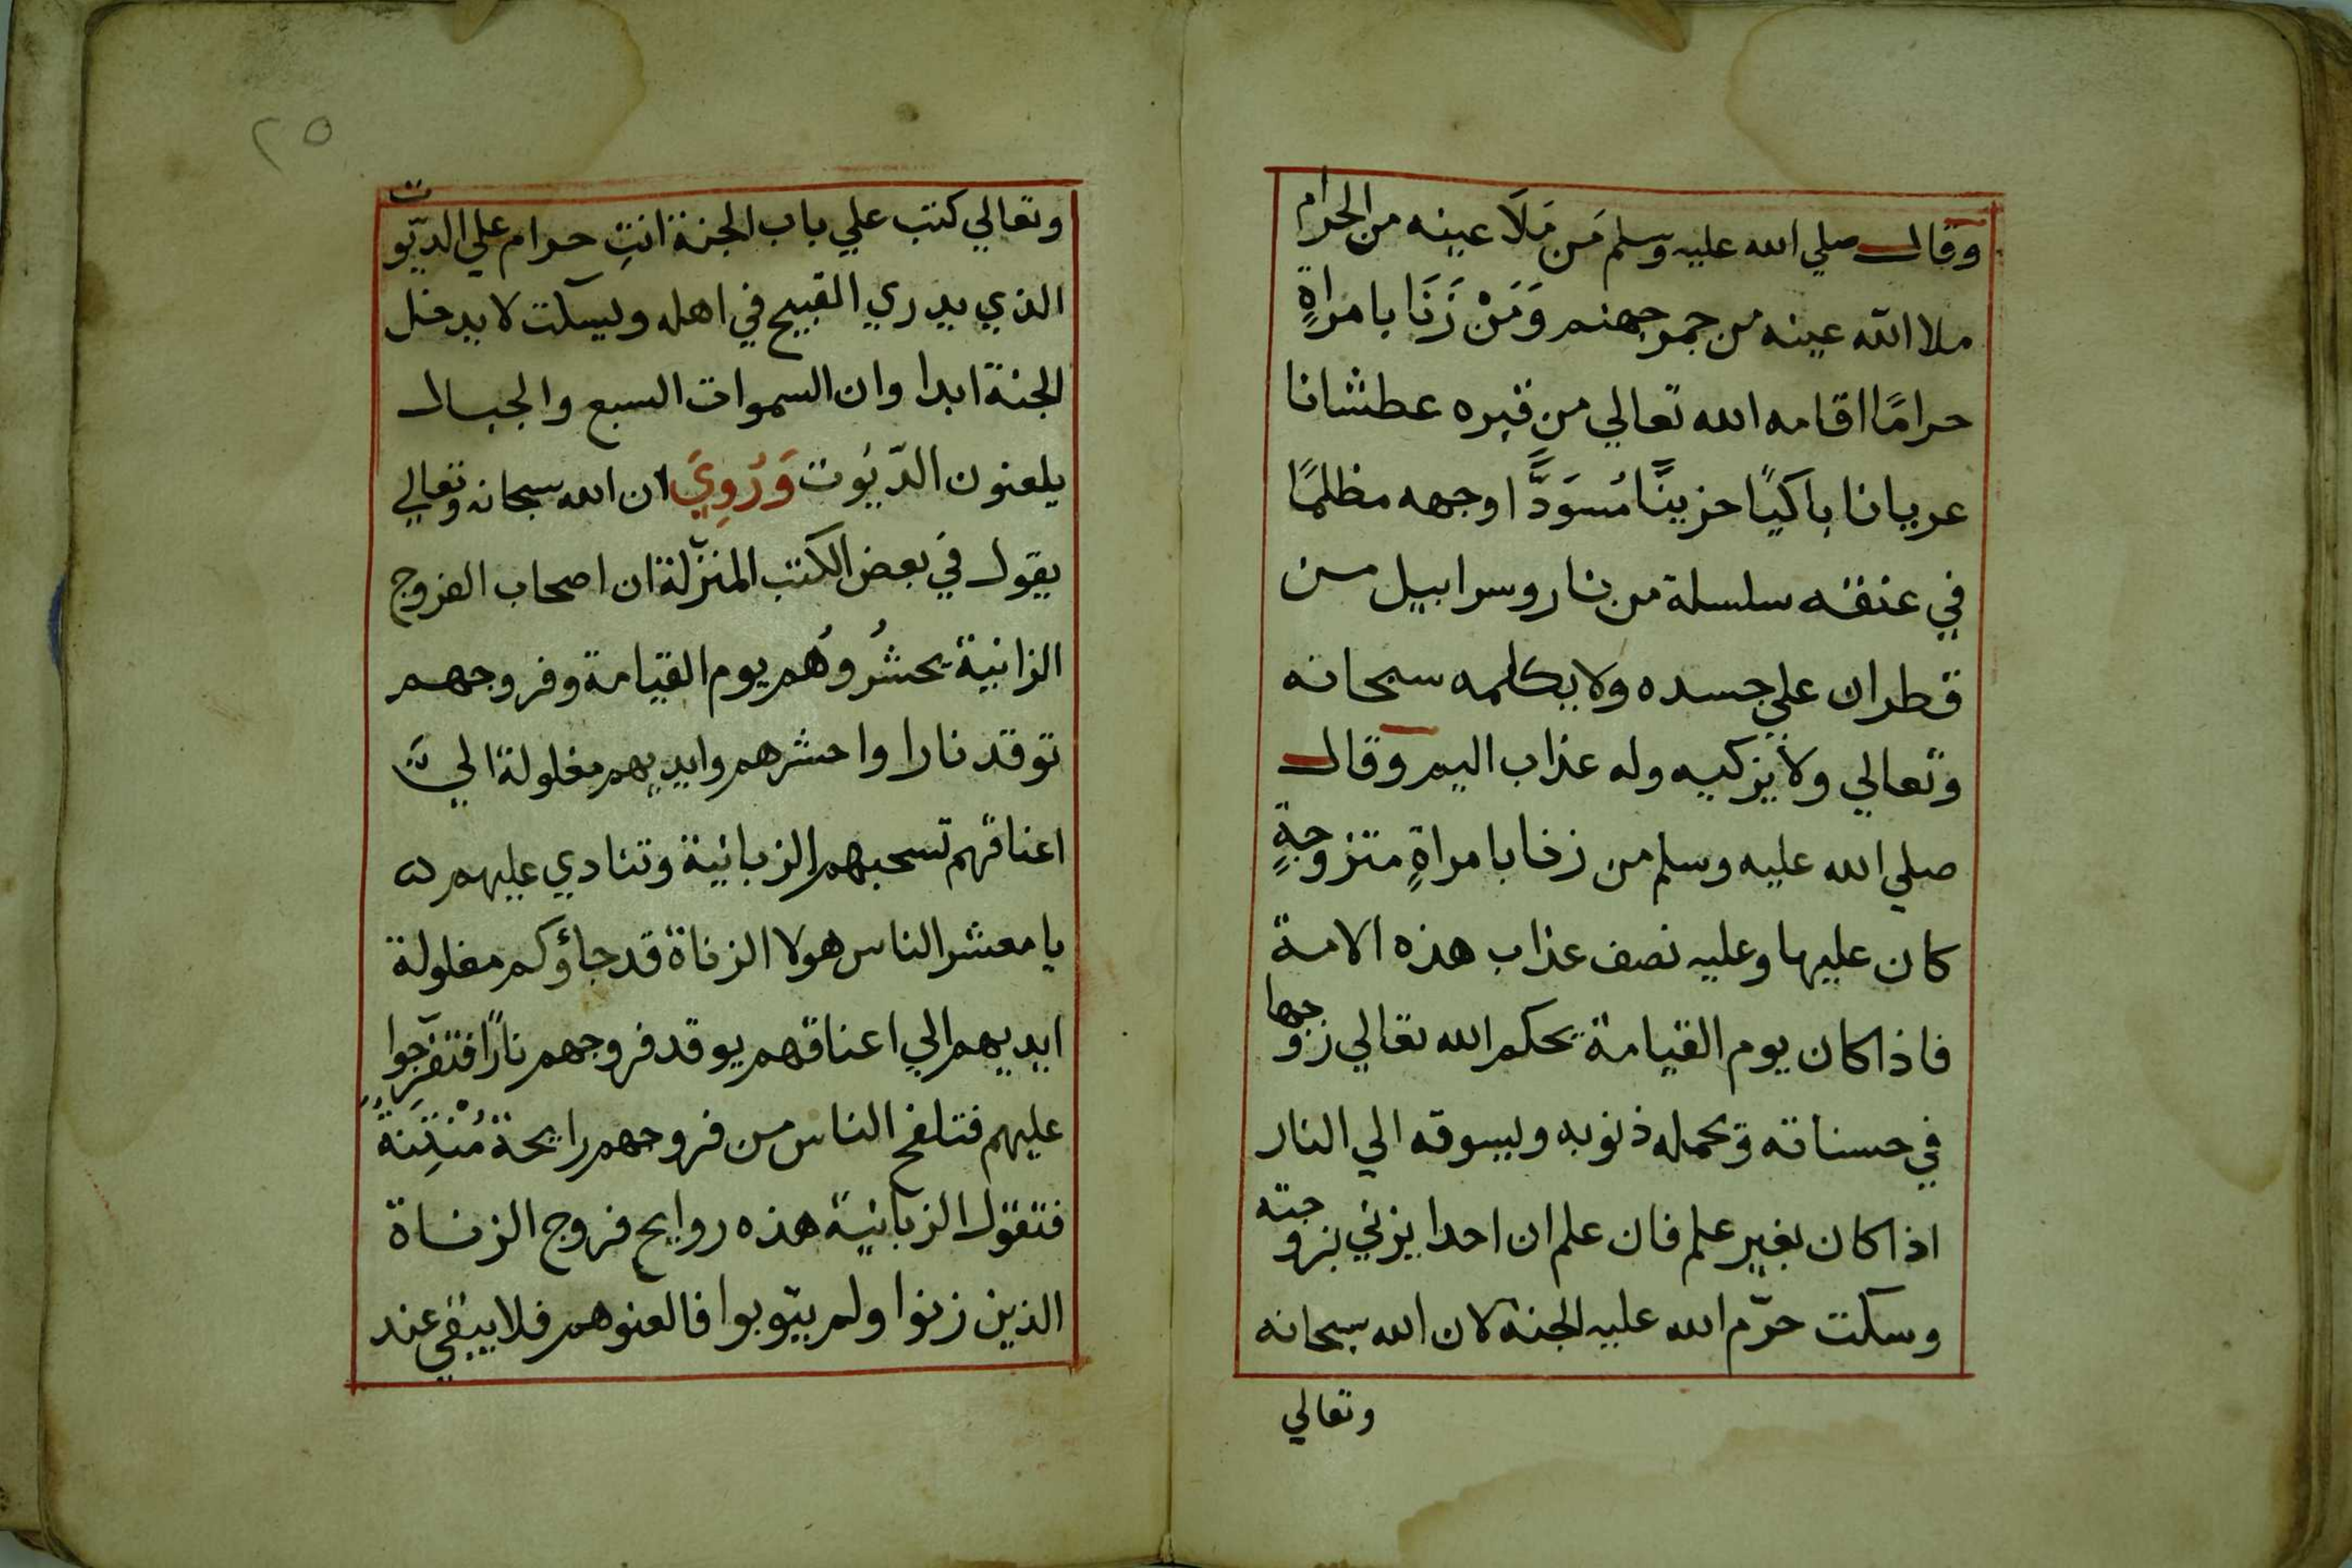 وقال صلي الله عليه وسلم مَن مَلَا عينه من الحرام
ملا الله عينه من جمر جهنم وَمَنْ زَنَا بامراةٍ
حرامًا اقامه الله تعالي من قبره عطشانا
عريانا باكيًا حزينًا مُسوَدًّا وجهه مظلمًا
في عنقه سلسلة من نار وسرابيل من
قطران علي جسده ولا يكلمه سبحانه
وتعالي ولا يزكيه وله عذاب اليم وقال
صلي الله عليه وسلم من زنا بامراةٍ متزوجةٍ
كان عليها وعليه نصف عذاب هذه الامة
فاذا كان يوم القيامة يحكم الله تعالي زوجها
في حسناته ويحمله ذنوبه ويسوقه الي النار
اذا كان بغير علم فان علم ان احدا يزني بزوجته
وسكت حرّم الله عليه الجنة لان الله سبحانه
وتعالي
٢٥
وتعالي كتب علي باب الجنة انتِ حرام علي الديّوت
الذي يدري القبيح في اهله ويسكت لا يدخل
الجنة ابدا وان السموات السبع والجبال
يلعنون الدّيُوت وَرُوِيَ ان الله سبحانه وتعالي
يقول في بعض الكتب المنزّلة ان اصحاب الفروج
الزانية يحشُروُهم يوم القيامة وفروجهم
توقد نارا واحشرهم وايديهم مغلولة الي
اعناقهم تسحبهم الزبانية وتنادي عليهم
يا معشر الناس هولا الزناة قد جاؤكم مغلولة
ايديهم الي اعناقهم يوقد فروجهم نارًا فتفرّجوا
عليهم فتلفح الناس من فروجهم رايحة مُنْتِنَةٌ
فتقول الزبانية هذه روايح فروج الزناة
الذين زنوا ولم يتوبوا فالعنوهم فلا يبقي عند